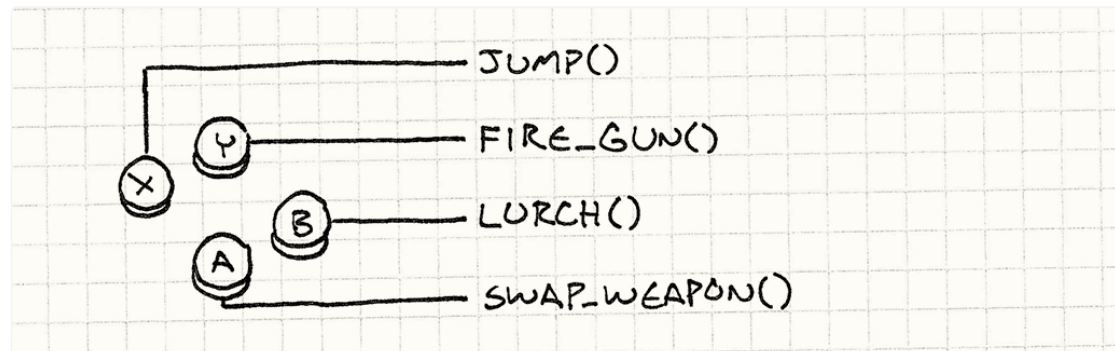 JUMP()
Y FIRE_GUN()
X
B LURCH()
A
SWAP_WEAPON()